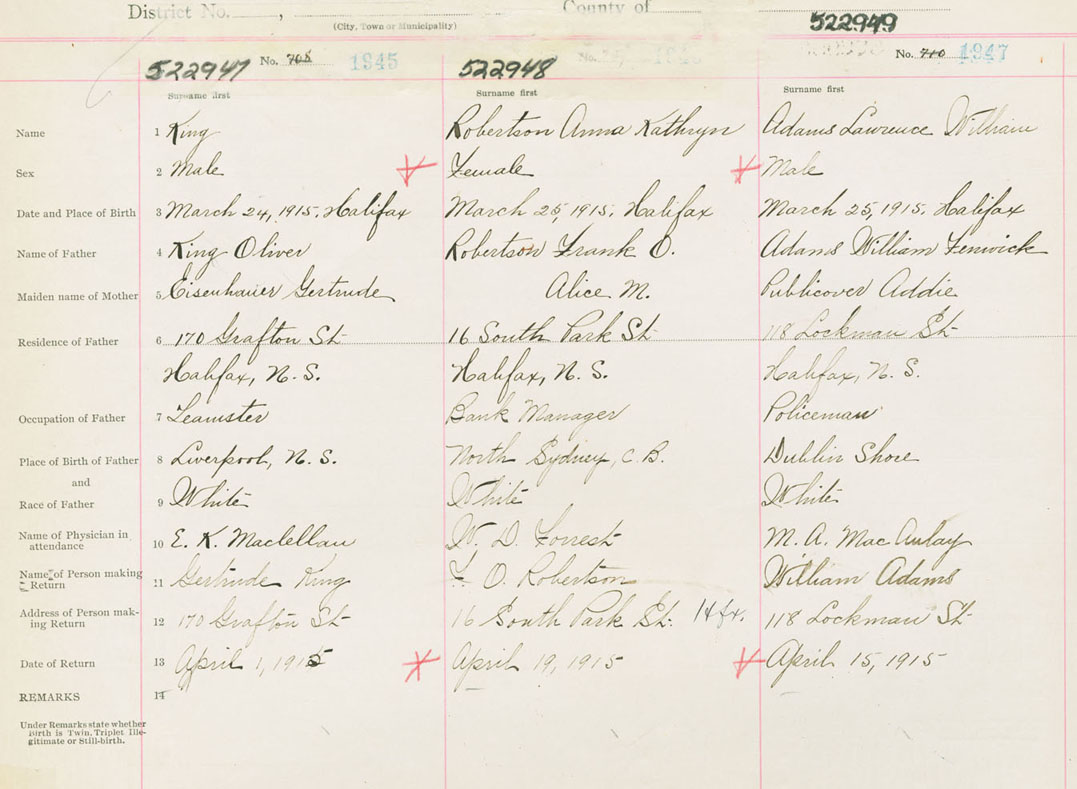 District No. , County of
(City, Town or Municipality)
522949
522947 No. 708 1945 522948 No. No. 710 1947
Surname first Surname first Surname first
Name 1 King Robertson Anna Kathryn Adams Lawrence William
Sex 2 Male Female Male
Date and Place of Birth 3 March 24, 1915. Halifax March 25, 1915. Halifax March 25, 1915. Halifax
Name of Father 4 King Oliver Robertson Frank O. Adams William Fenwick
Maiden name of Mother 5 Eisenhauer Gertrude Alice M. Publicover Addie
Residence of Father 6 170 Grafton St 16 South Park St 118 Lockman St
Halifax, N. S. Halifax, N. S. Halifax, N. S.
Occupation of Father 7 Teamster Bank Manager Policeman
Place of Birth of Father 8 Liverpool, N. S. North Sydney, C. B. Dublin Shore
and
Race of Father 9 White White White
Name of Physician in
attendance 10 E. K. Maclellan W. D. Forrest M. A. MacAulay
Name of Person making
Return 11 Gertrude King F. O. Robertson William Adams
Address of Person mak-
ing Return 12 170 Grafton St 16 South Park St. Hfx. 118 Lockman St
Date of Return 13 April 1, 1915 April 19, 1915 April 15, 1915
REMARKS 14
Under Remarks state whether
Birth is Twin, Triplet Ille-
gitimate or Still-birth.